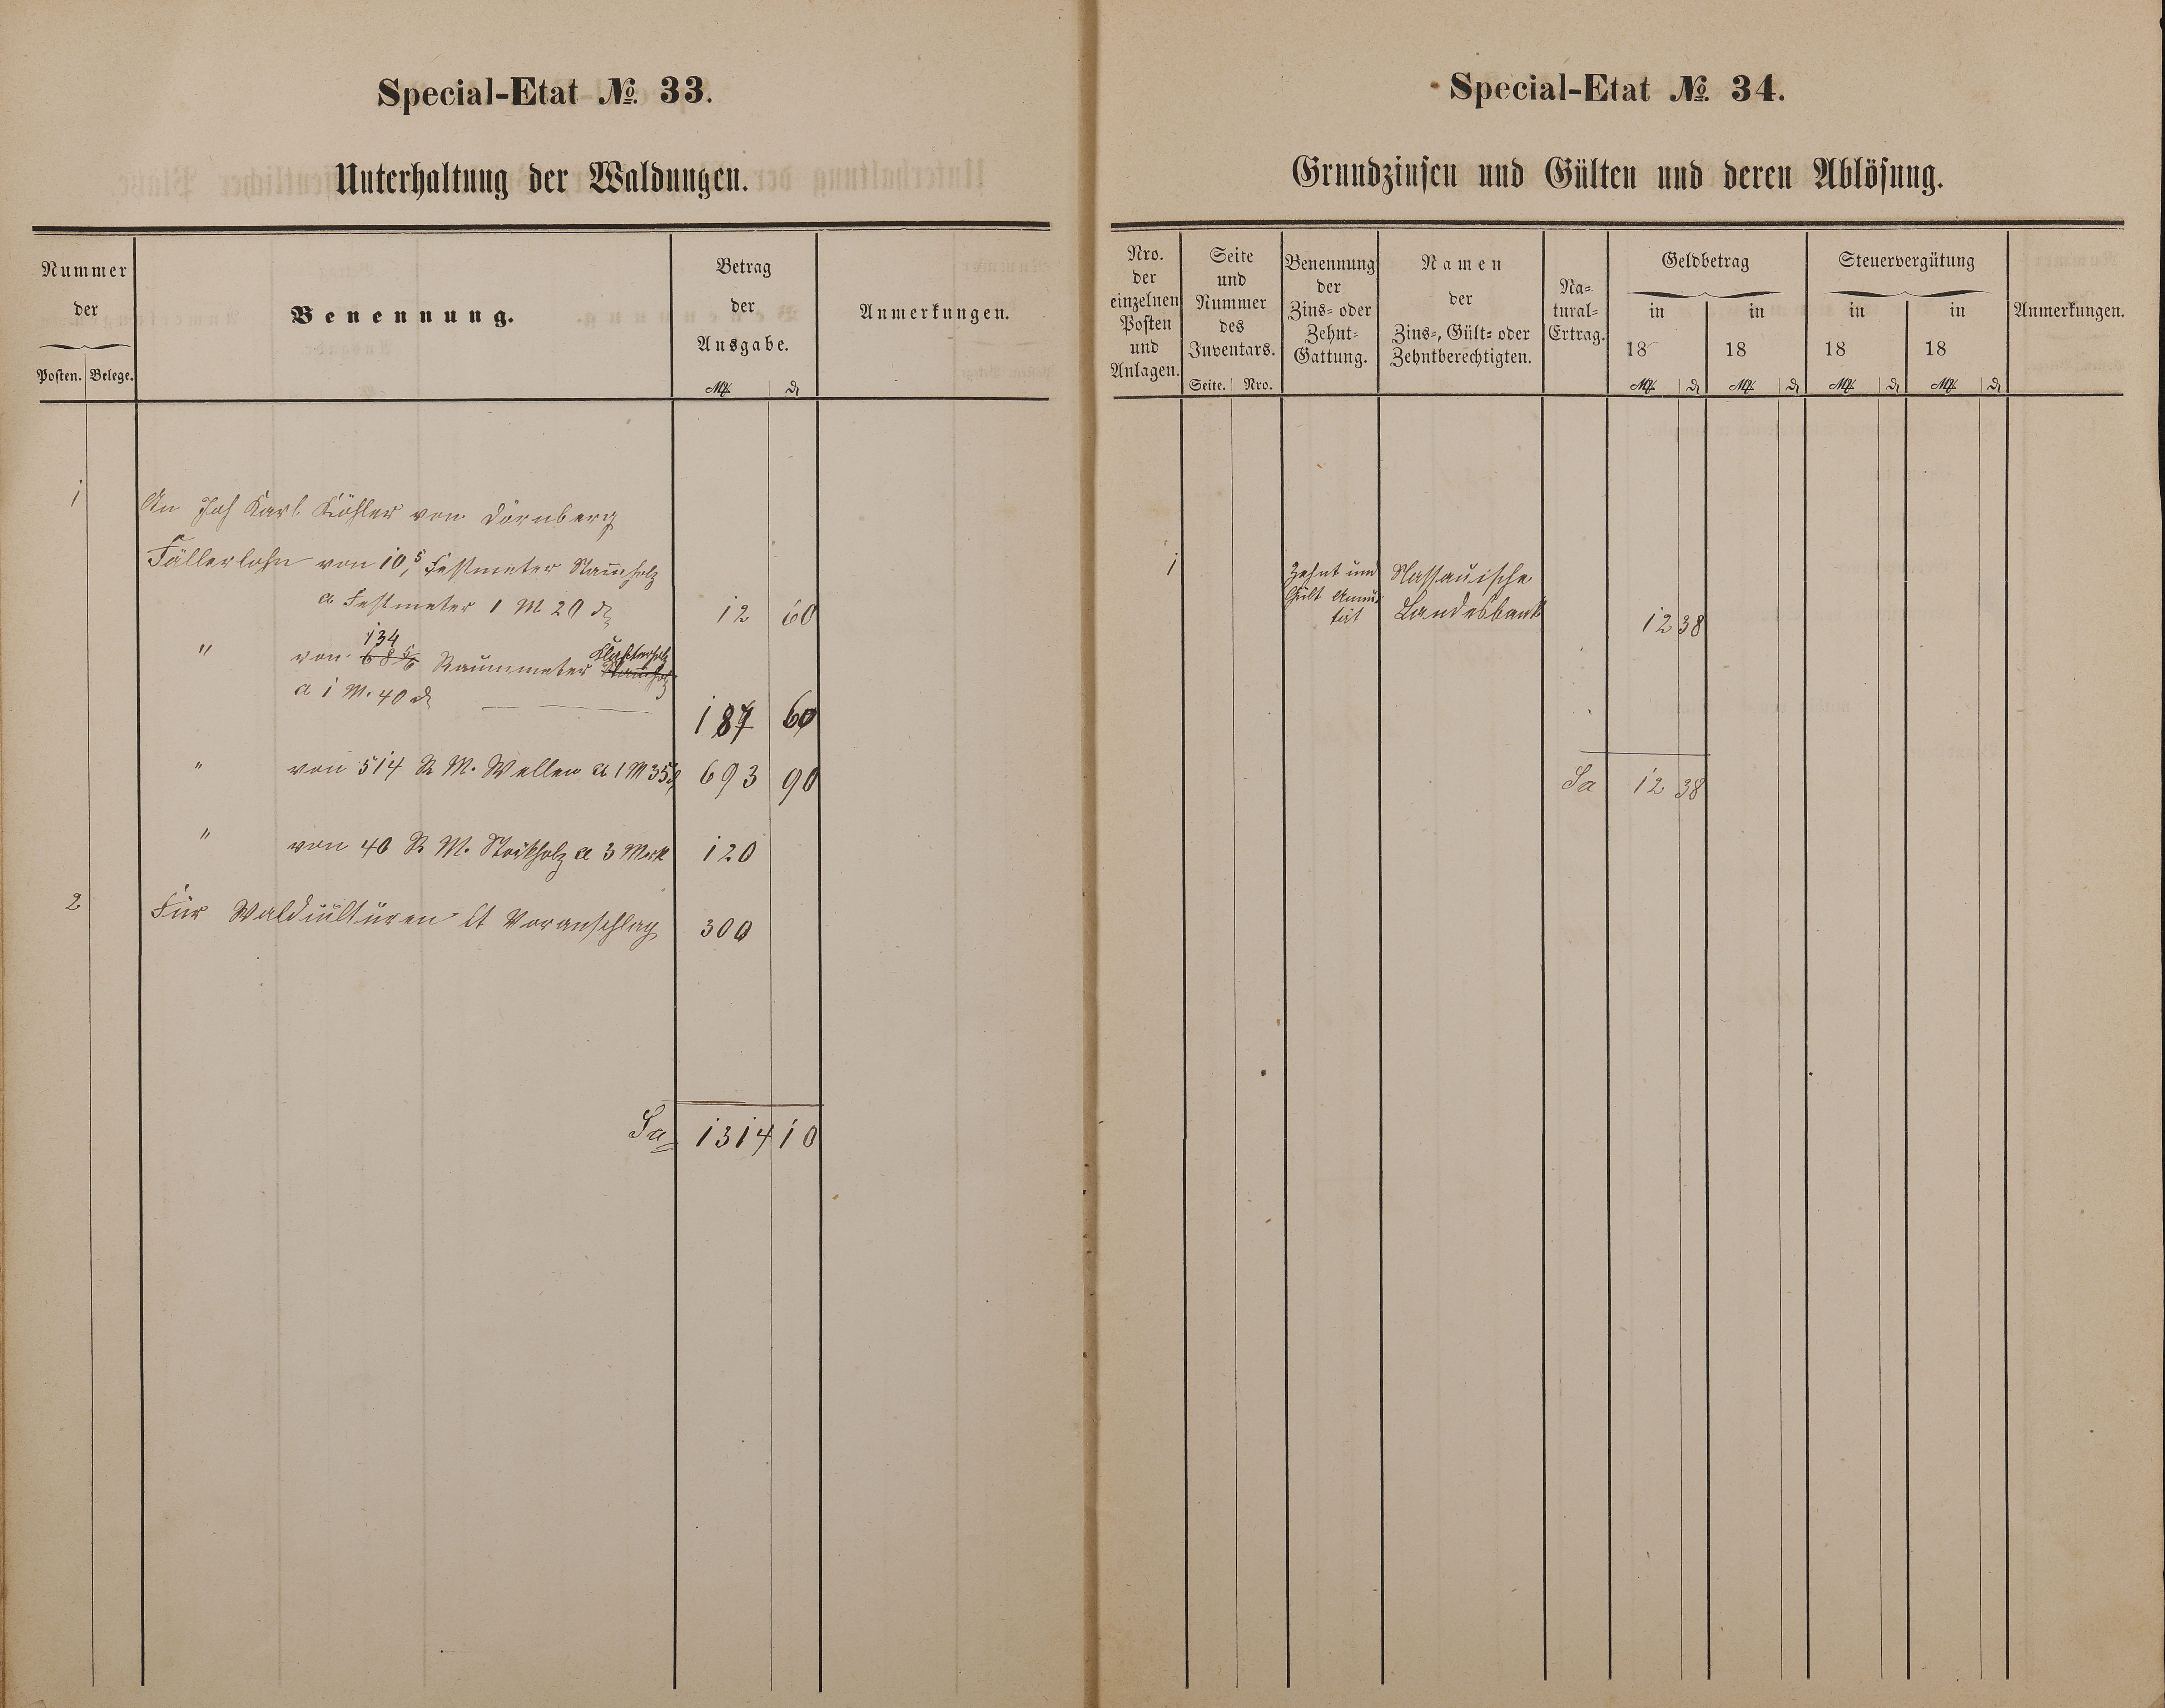 Special-Etat No. 33.
Unterhaltung der Waldungen.
Nummer der
Posten. Belege.
Benennung.
Betrag der Ausgabe.
ℳ ₰
Anmerkungen.
1 An Joh Karl Köhler von Dörnberg
Fällerlohn von 10,5 Festmeter Stammholz
a Festmeter 1 M 20 ₰ 12 60
134
" von 68 5/6 Raummeter Klafterholz
a 1 M. 40 ₰ 187 60
" von 514 R M. Wellen a 1 M 35 ₰ 693 90
" von 40 R M. Stockholz a 3 Mark 120
2 Für Waldculturen lt Voranschlag 300
Sa 1314 10
Special-Etat No. 34.
Grundzinsen und Gülten und deren Ablösung.
Nro. der einzelnen Posten und Anlagen.
Seite und Nummer des Inventars.
Seite. Nro.
Benennung der Zins- oder Zehnt-Gattung.
Namen der Zins-, Gült- oder Zehntberechtigten.
Na-tural-Ertrag.
Geldbetrag
in 18 in 18
ℳ ₰ ℳ ₰
Steuervergütung
in 18 in 18
ℳ ₰ ℳ ₰
Anmerkungen.
1 Zehnt und Nassauische
Gült Annui- Landesbank 12 38
tät
Sa 12 38